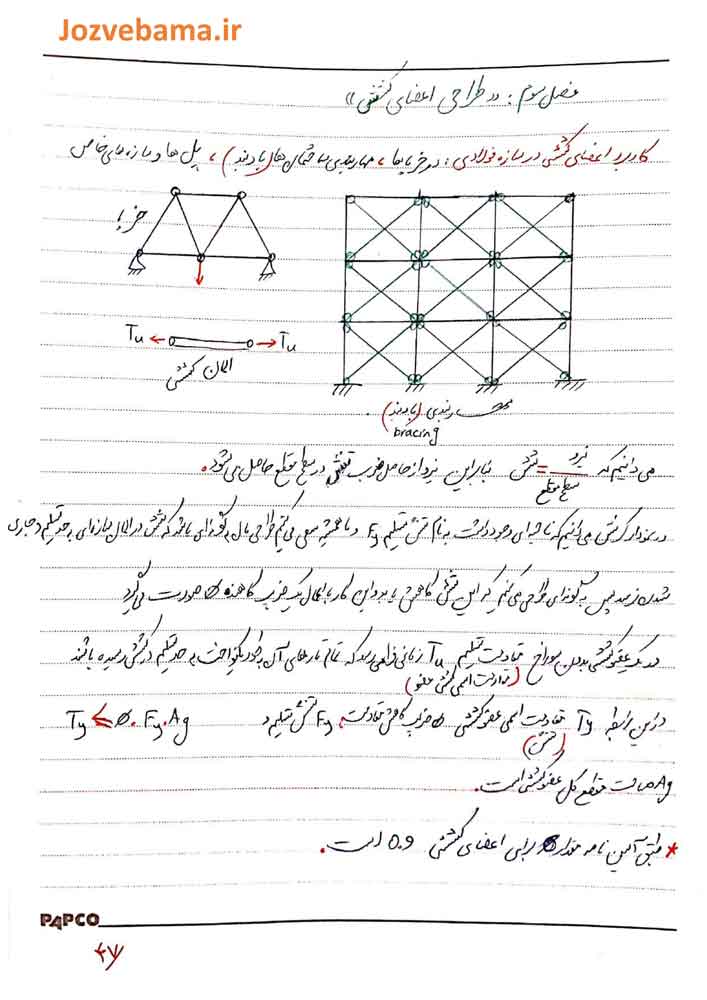 Jozvebama.ir
فصل سوم: «طراحی اعضای کششی»
کاربرد اعضای کششی در سازه فولادی: در خرپاها، مهاربندی ساختمان ها (بادبند)، پل ها و سازه های خاص
خرپا
Tu Tu
المان کششی
مهاربندی (بادبند).
bracing
می دانیم که نیرو / سطح مقطع = تنش بنابراین نیرو از حاصل ضرب تنش در سطح مقطع حاصل می شود.
در نمودار کرنش می دانیم که ناحیه ای وجود داشت به نام تنش تسلیم Fy و ما همیشه سعی می کنیم طراحی مان به گونه ای باشد که تنش در المان سازه ای به حد تسلیم و جاری
شدن نرسد پس به گونه ای طراحی می کنیم که این تنش کاهش یابد و این کار با اعمال یک ضریب کاهنده Ø صورت می گیرد
در یک عضو کششی بدون سوراخ مقاومت تسلیم Tu زمانی فرا می رسد که تمام تارهای آن به طور یکنواخت به حد تسلیم در کشش رسیده باشند
(مقاومت اسمی کششی عضو)
در این رابطه Ty مقاومت اسمی عضو کششی Ø ضریب کاهش مقاومت، Fy تنش تسلیم و Ty ≤ Ø.Fy.Ag
(تنش)
Ag مساحت مقطع کل عضو کششی است.
* طبق آئین نامه مقدار Ø برای اعضای کششی 0.9 است.
PAPCO
۴۷